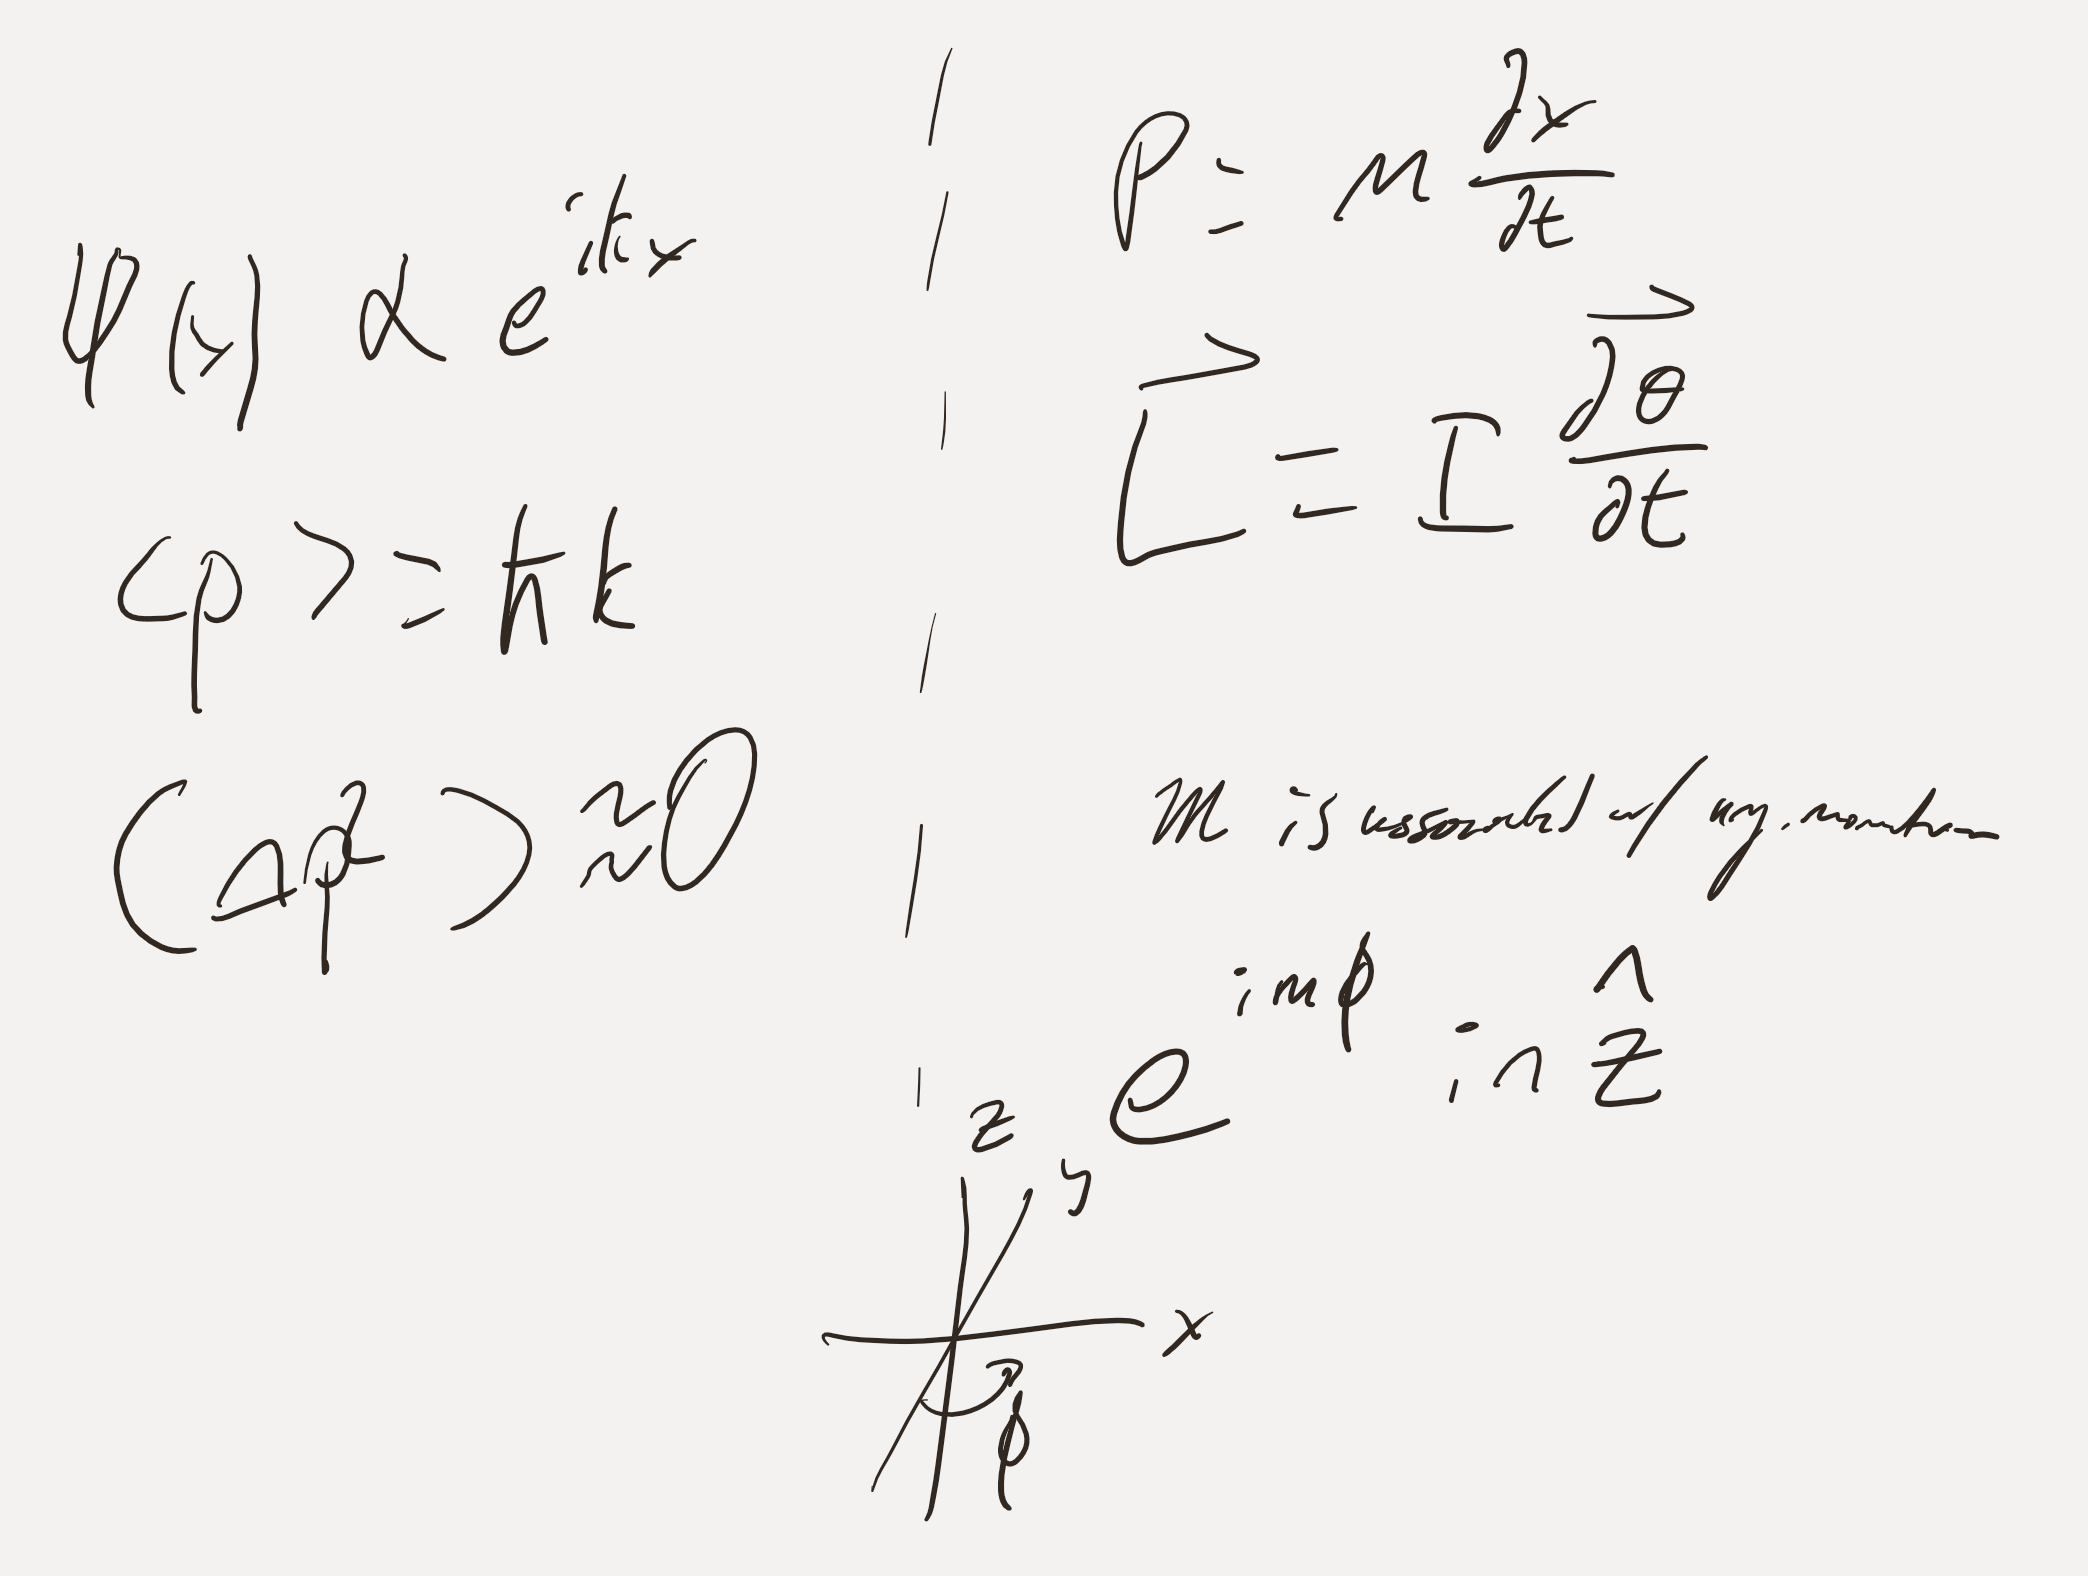 ψ(x) ∝ e^{ikx}
<p> = ħk
(Δp²) ≈ 0
P = m ∂x/∂t
L⃗ = I ∂θ⃗/∂t
m is associated w/ ang. momentum
e^{imϕ} in ẑ
z
y
x
ϕ